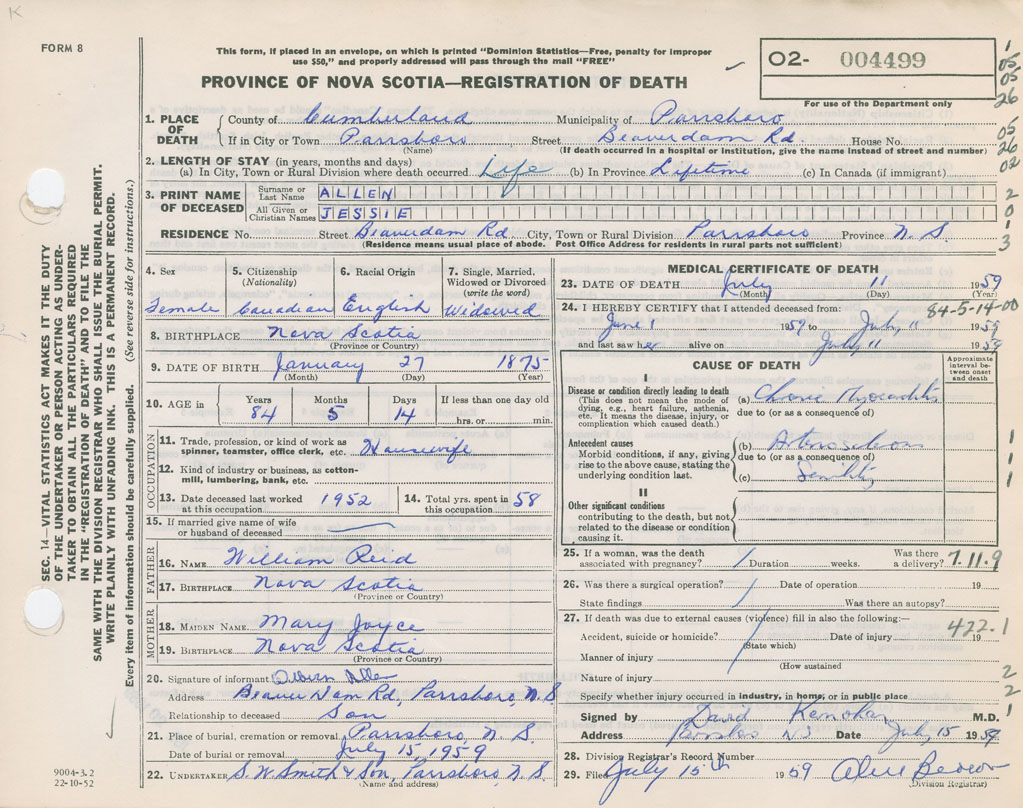 K
FORM 8
This form, if placed in an envelope, on which is printed "Dominion Statistics—Free, penalty for improper
use $50," and properly addressed will pass through the mail "FREE"
PROVINCE OF NOVA SCOTIA—REGISTRATION OF DEATH
O2- 004499
For use of the Department only
1
05
05
26
05
26
02
2
0
1
3
1. PLACE OF DEATH
County of Cumberland Municipality of Parrsboro
If in City or Town Parrsboro Street Beaverdam Rd. House No.
(Name) (If death occurred in a hospital or institution, give the name instead of street and number)
2. LENGTH OF STAY (in years, months and days)
(a) In City, Town or Rural Division where death occurred Life (b) In Province Lifetime (c) In Canada (if immigrant)
3. PRINT NAME OF DECEASED
Surname or Last Name ALLEN
All Given or Christian Names JESSIE
RESIDENCE No. Street Beaverdam Rd City, Town or Rural Division Parrsboro Province N.S.
(Residence means usual place of abode. Post Office Address for residents in rural parts not sufficient)
SEC. 14—VITAL STATISTICS ACT MAKES IT THE DUTY
OF THE UNDERTAKER OR PERSON ACTING AS UNDER-
TAKER TO OBTAIN ALL THE PARTICULARS REQUIRED
IN THE "REGISTRATION OF DEATH" AND TO FILE THE
SAME WITH THE DIVISION REGISTRAR WHO SHALL ISSUE THE BURIAL PERMIT.
WRITE PLAINLY WITH UNFADING INK. THIS IS A PERMANENT RECORD.
Every item of information should be carefully supplied. (See reverse side for instructions.)
4. Sex
Female
5. Citizenship
(Nationality)
Canadian
6. Racial Origin
English
7. Single, Married,
Widowed or Divorced
(write the word)
Widowed
8. BIRTHPLACE Nova Scotia
(Province or Country)
9. DATE OF BIRTH January 27 1875
(Month) (Day) (Year)
10. AGE in
Years Months Days If less than one day
84 5 14 hrs. or min.
OCCUPATION
11. Trade, profession, or kind of work as
spinner, teamster, office clerk, etc. Housewife
12. Kind of industry or business, as cotton-
mill, lumbering, bank, etc.
13. Date deceased last worked
at this occupation 1952
14. Total yrs. spent in
this occupation 58
15. If married give name of wife
or husband of deceased
FATHER
16. NAME William Reid
17. BIRTHPLACE Nova Scotia
(Province or Country)
MOTHER
18. MAIDEN NAME Mary Joyce
19. BIRTHPLACE Nova Scotia
(Province or Country)
20. Signature of informant Allen
Address Beaver Dam Rd, Parrsboro, N.S
Relationship to deceased Son
21. Place of burial, cremation or removal Parrsboro, N.S.
Date of burial or removal July 15, 1959
22. UNDERTAKER S.W. Smith & Son, Parrsboro N.S.
(Name and address)
9004-3.2
22-10-52
MEDICAL CERTIFICATE OF DEATH
23. DATE OF DEATH July 11 1959
(Month) (Day) (Year)
24. I HEREBY CERTIFY that I attended deceased from: 84-5-14-00
June 1 1959 to July 11 1959
and last saw her alive on July 11 1959
CAUSE OF DEATH
Approximate
interval be-
tween onset
and death
I
Disease or condition directly leading to death
(This does not mean the mode of
dying, e.g., heart failure, asthenia,
etc. It means the disease, injury, or
complication which caused death.)
(a) Chronic Myocarditis
due to (or as a consequence of)
Antecedent causes
Morbid conditions, if any, giving
rise to the above cause, stating the
underlying condition last.
(b)
due to (or as a consequence of)
(c) Senility
1
1
1
II
Other significant conditions
contributing to the death, but not
related to the disease or condition
causing it.
25. If a woman, was the death
associated with pregnancy? Duration weeks. Was there
a delivery? 7.11.9
26. Was there a surgical operation? Date of operation 19
State findings Was there an autopsy?
27. If death was due to external causes (violence) fill in also the following:— 422.1
Accident, suicide or homicide? Date of injury 19
(State which)
Manner of injury
(How sustained
Nature of injury 2
Specify whether injury occurred in industry, in home, or in public place 2
Signed by David Kernohan M.D. 1
Address Parrsboro NS Date July 15 1959
28. Division Registrar's Record Number
29. Filed July 15th 1959
(Division Registrar)